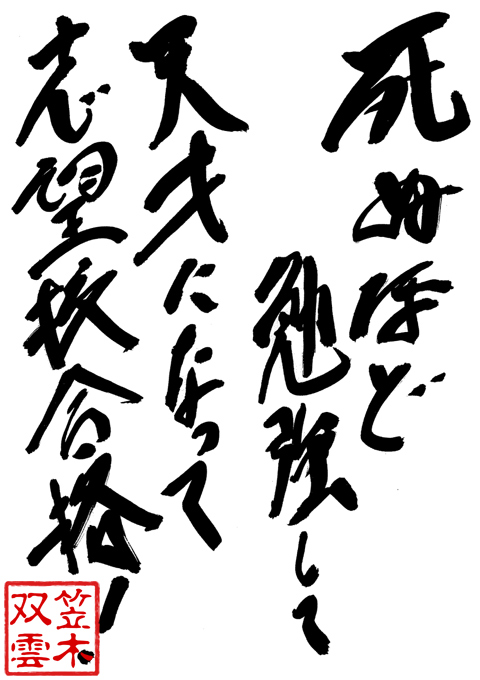 死ぬほど
勉強して
天才になって
志望校合格!
笠木
双雲